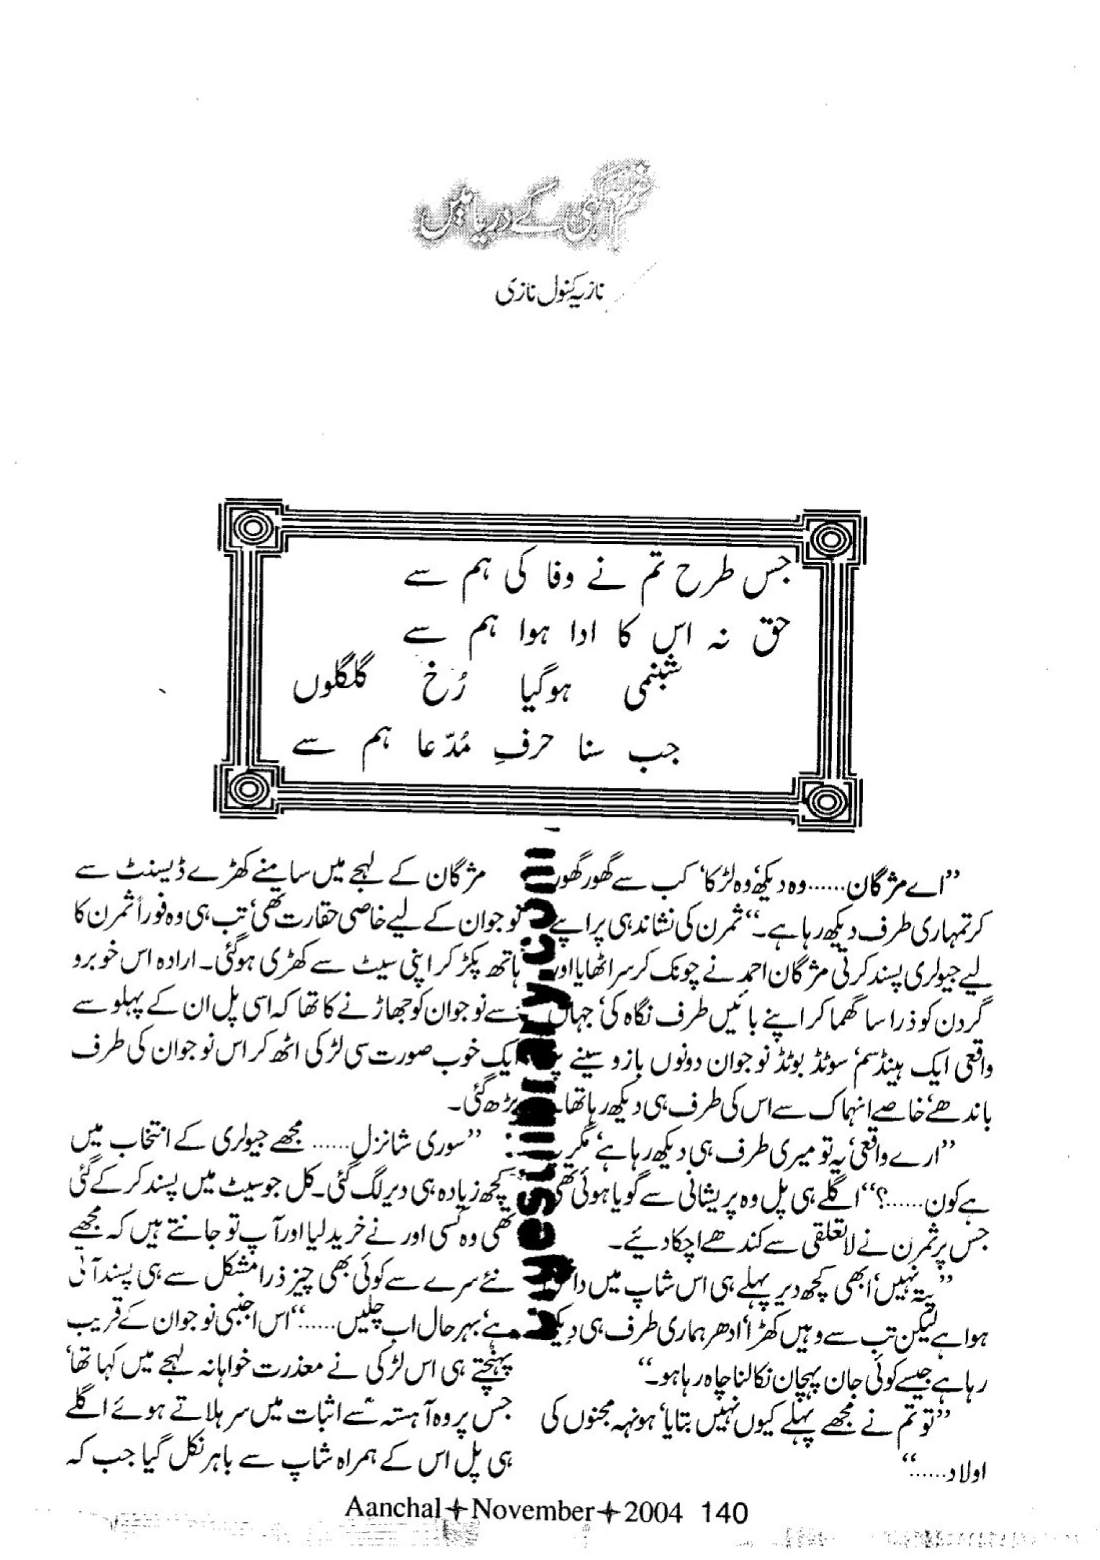 غم آگہی کے دریا میں
نازیہ کنول نازی
جس طرح تم نے وفا کی ہم سے
حق نہ اس کا ادا ہوا ہم سے
شبنمی ہوگیا رُخ گلگلوں
جب سنا حرفِ مُدّعا ہم سے
”اے مژگان......وہ دیکھو‘ وہ لڑکا‘ کب سے گھور گھور
کر تمہاری طرف دیکھ رہا ہے۔“ ثمرن کی نشاندہی پر اپنے
لیے جیولری پسند کرتی مژگان احمد نے چونک کر سر اٹھایا اور
گردن کو ذرا سا گھما کر اپنے بائیں طرف نگاہ کی‘ جہاں
واقعی ایک ہینڈسم‘ سوٹڈ بوٹڈ نوجوان دونوں بازو سینے پر
باندھے‘ خاصے انہماک سے اس کی طرف ہی دیکھ رہا تھا۔
”ارے واقعی‘ یہ تو میری طرف ہی دیکھ رہا ہے‘ مگر یہ
ہے کون......؟“ اگلے ہی پل وہ پریشانی سے گویا ہوئی تھی
جس پر ثمرن نے لاتعلقی سے کندھے اچکا دیئے۔
”پتہ نہیں‘ ابھی کچھ دیر پہلے ہی اس شاپ میں داخل
ہوا ہے لیکن تب سے وہیں کھڑا‘ ادھر ہماری طرف ہی دیکھ
رہا ہے جیسے کوئی جان پہچان نکالنا چاہ رہا ہو۔“
”تو تم نے مجھے پہلے کیوں نہیں بتایا‘ ہونہہ مجنوں کی
اولاد......“
مژگان کے لہجے میں سامنے کھڑے ڈیسنٹ سے
نوجوان کے لیے خاصی حقارت تھی‘ تب ہی وہ فوراً ثمرن کا
ہاتھ پکڑ کر اپنی سیٹ سے کھڑی ہوگئی۔ ارادہ اس خوبرو
سے نوجوان کو جھاڑنے کا تھا کہ اسی پل ان کے پہلو سے
ایک خوب صورت سی لڑکی اٹھ کر اس نوجوان کی طرف
بڑھ گئی۔
”سوری شانزل...... مجھے جیولری کے انتخاب میں
کچھ زیادہ ہی دیر لگ گئی۔ کل جو سیٹ میں پسند کرکے گئی
تھی وہ کسی اور نے خرید لیا اور آپ تو جانتے ہیں کہ مجھے
نئے سرے سے کوئی بھی چیز ذرا مشکل سے ہی پسند آتی
ہے‘ بہرحال اب چلیں......“ اس اجنبی نوجوان کے قریب
پہنچتے ہی اس لڑکی نے معذرت خواہانہ لہجے میں کہا تھا‘
جس پر وہ آہستہ سے اثبات میں سر ہلاتے ہوئے اگلے
ہی پل اس کے ہمراہ شاپ سے باہر نکل گیا جب کہ
Aanchal+November+2004 140